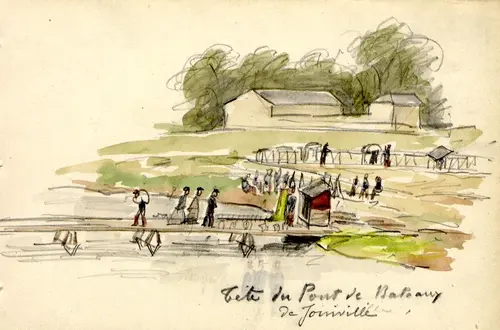 Tête du Pont de Bateaux
de Joinville